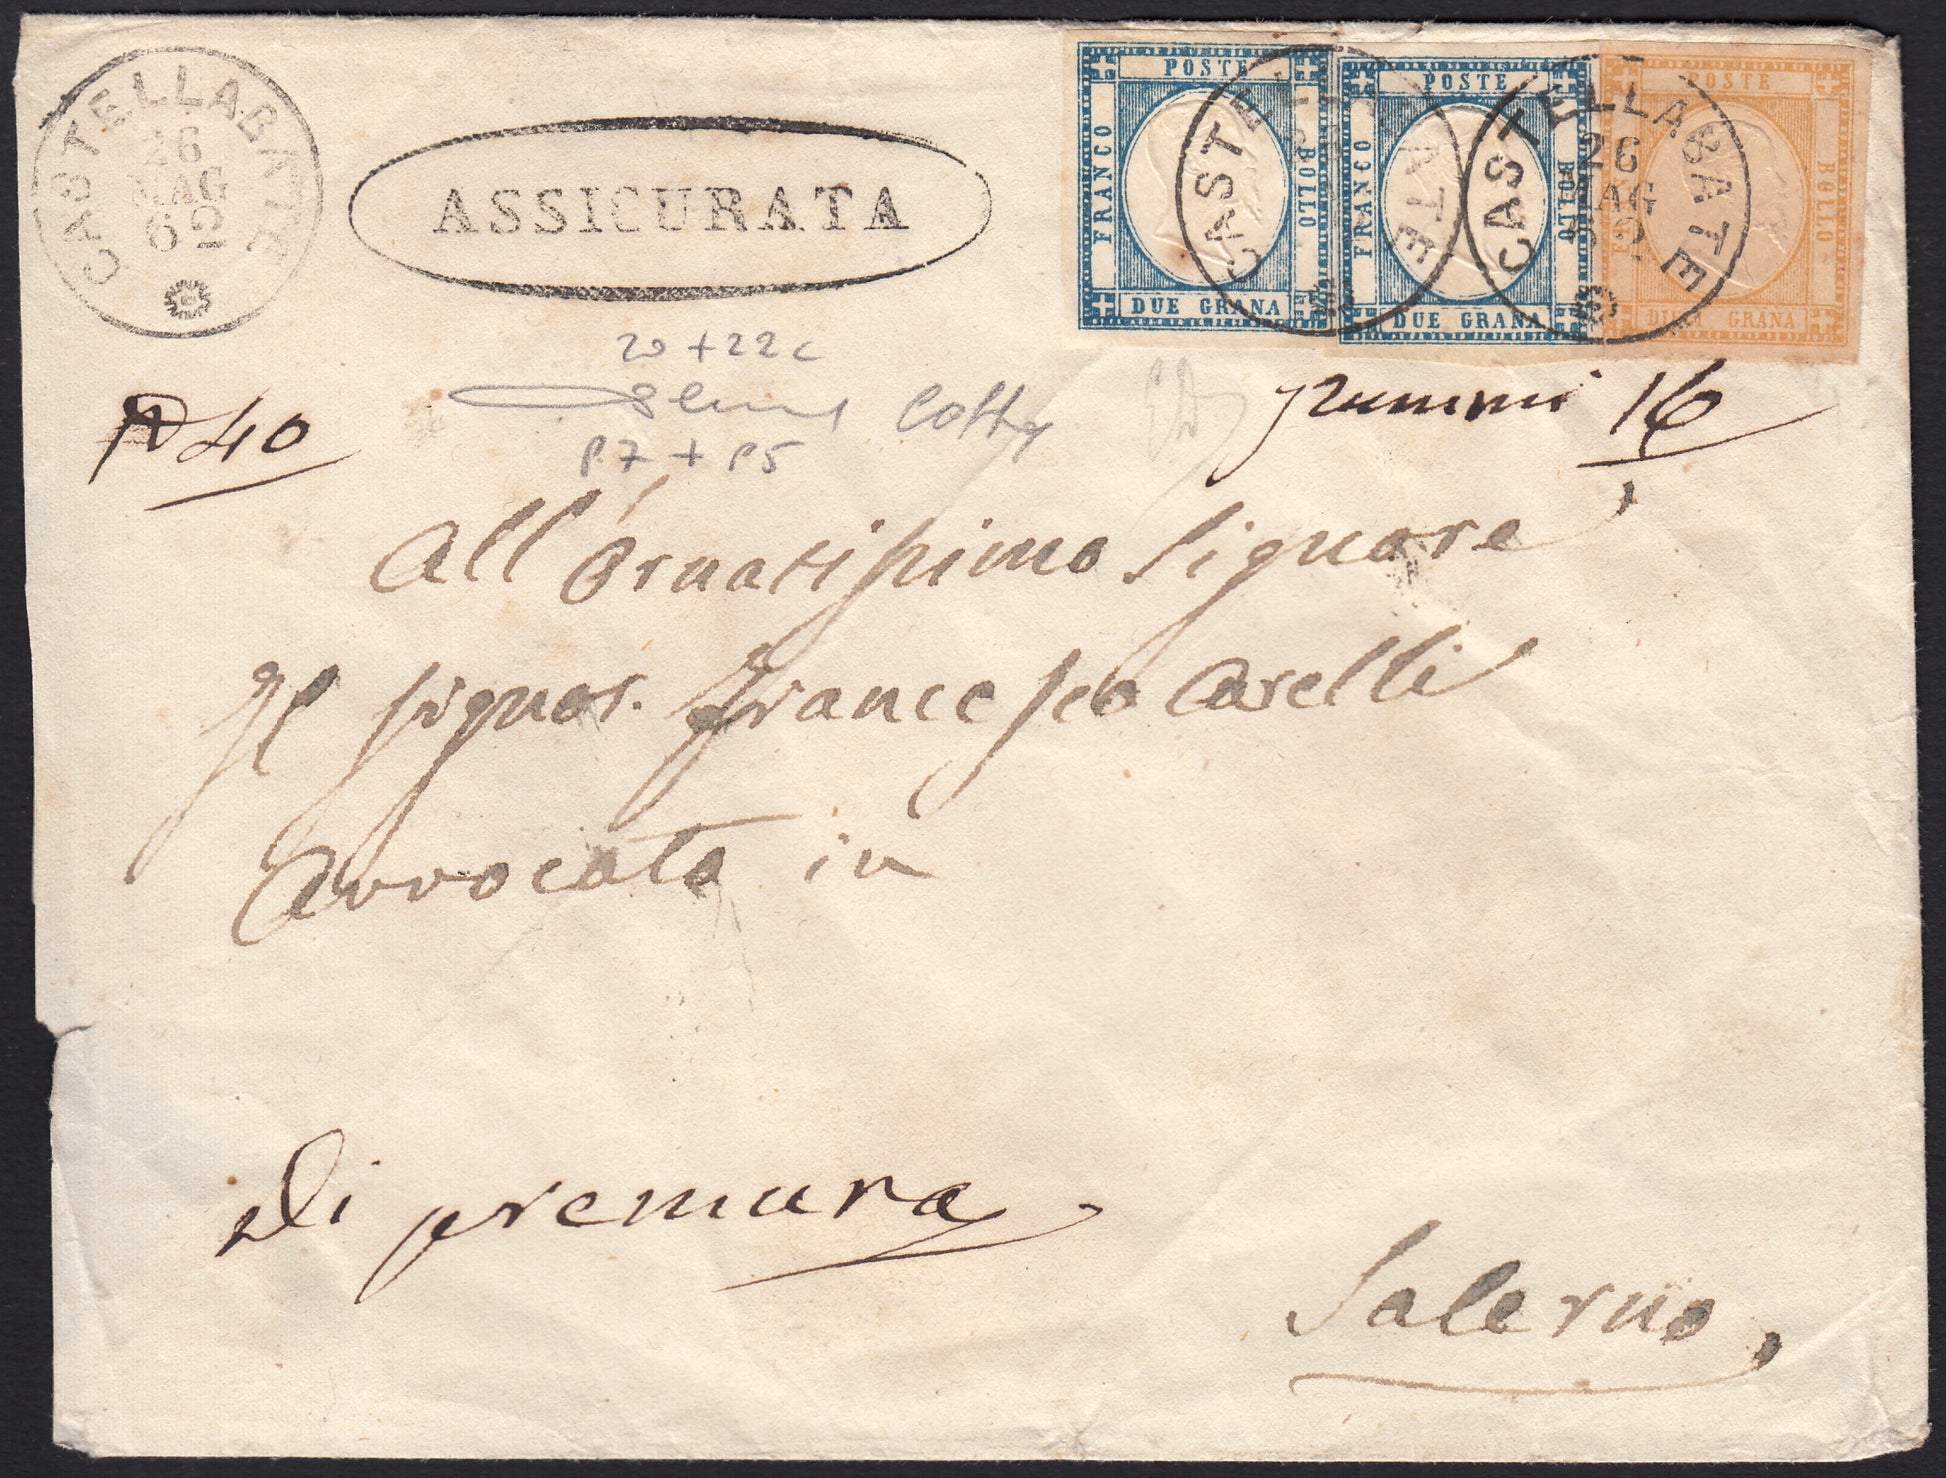 CASTELLABATE
26
MAG
62
ASSICURATA
POSTE
FRANCO
BOLLO
DUE GRANA
POSTE
FRANCO
BOLLO
DUE GRANA
POSTE
BOLLO
DIECI GRANA
CASTELLABATE
CASTELLABATE
26
MAG
62
20 + 22c
P.7 + P5
N 40
Grammi 16
All'Ornatissimo Signore
Il Signor. Francesco Carelli
Avvocato in
Di premura
Salerno,